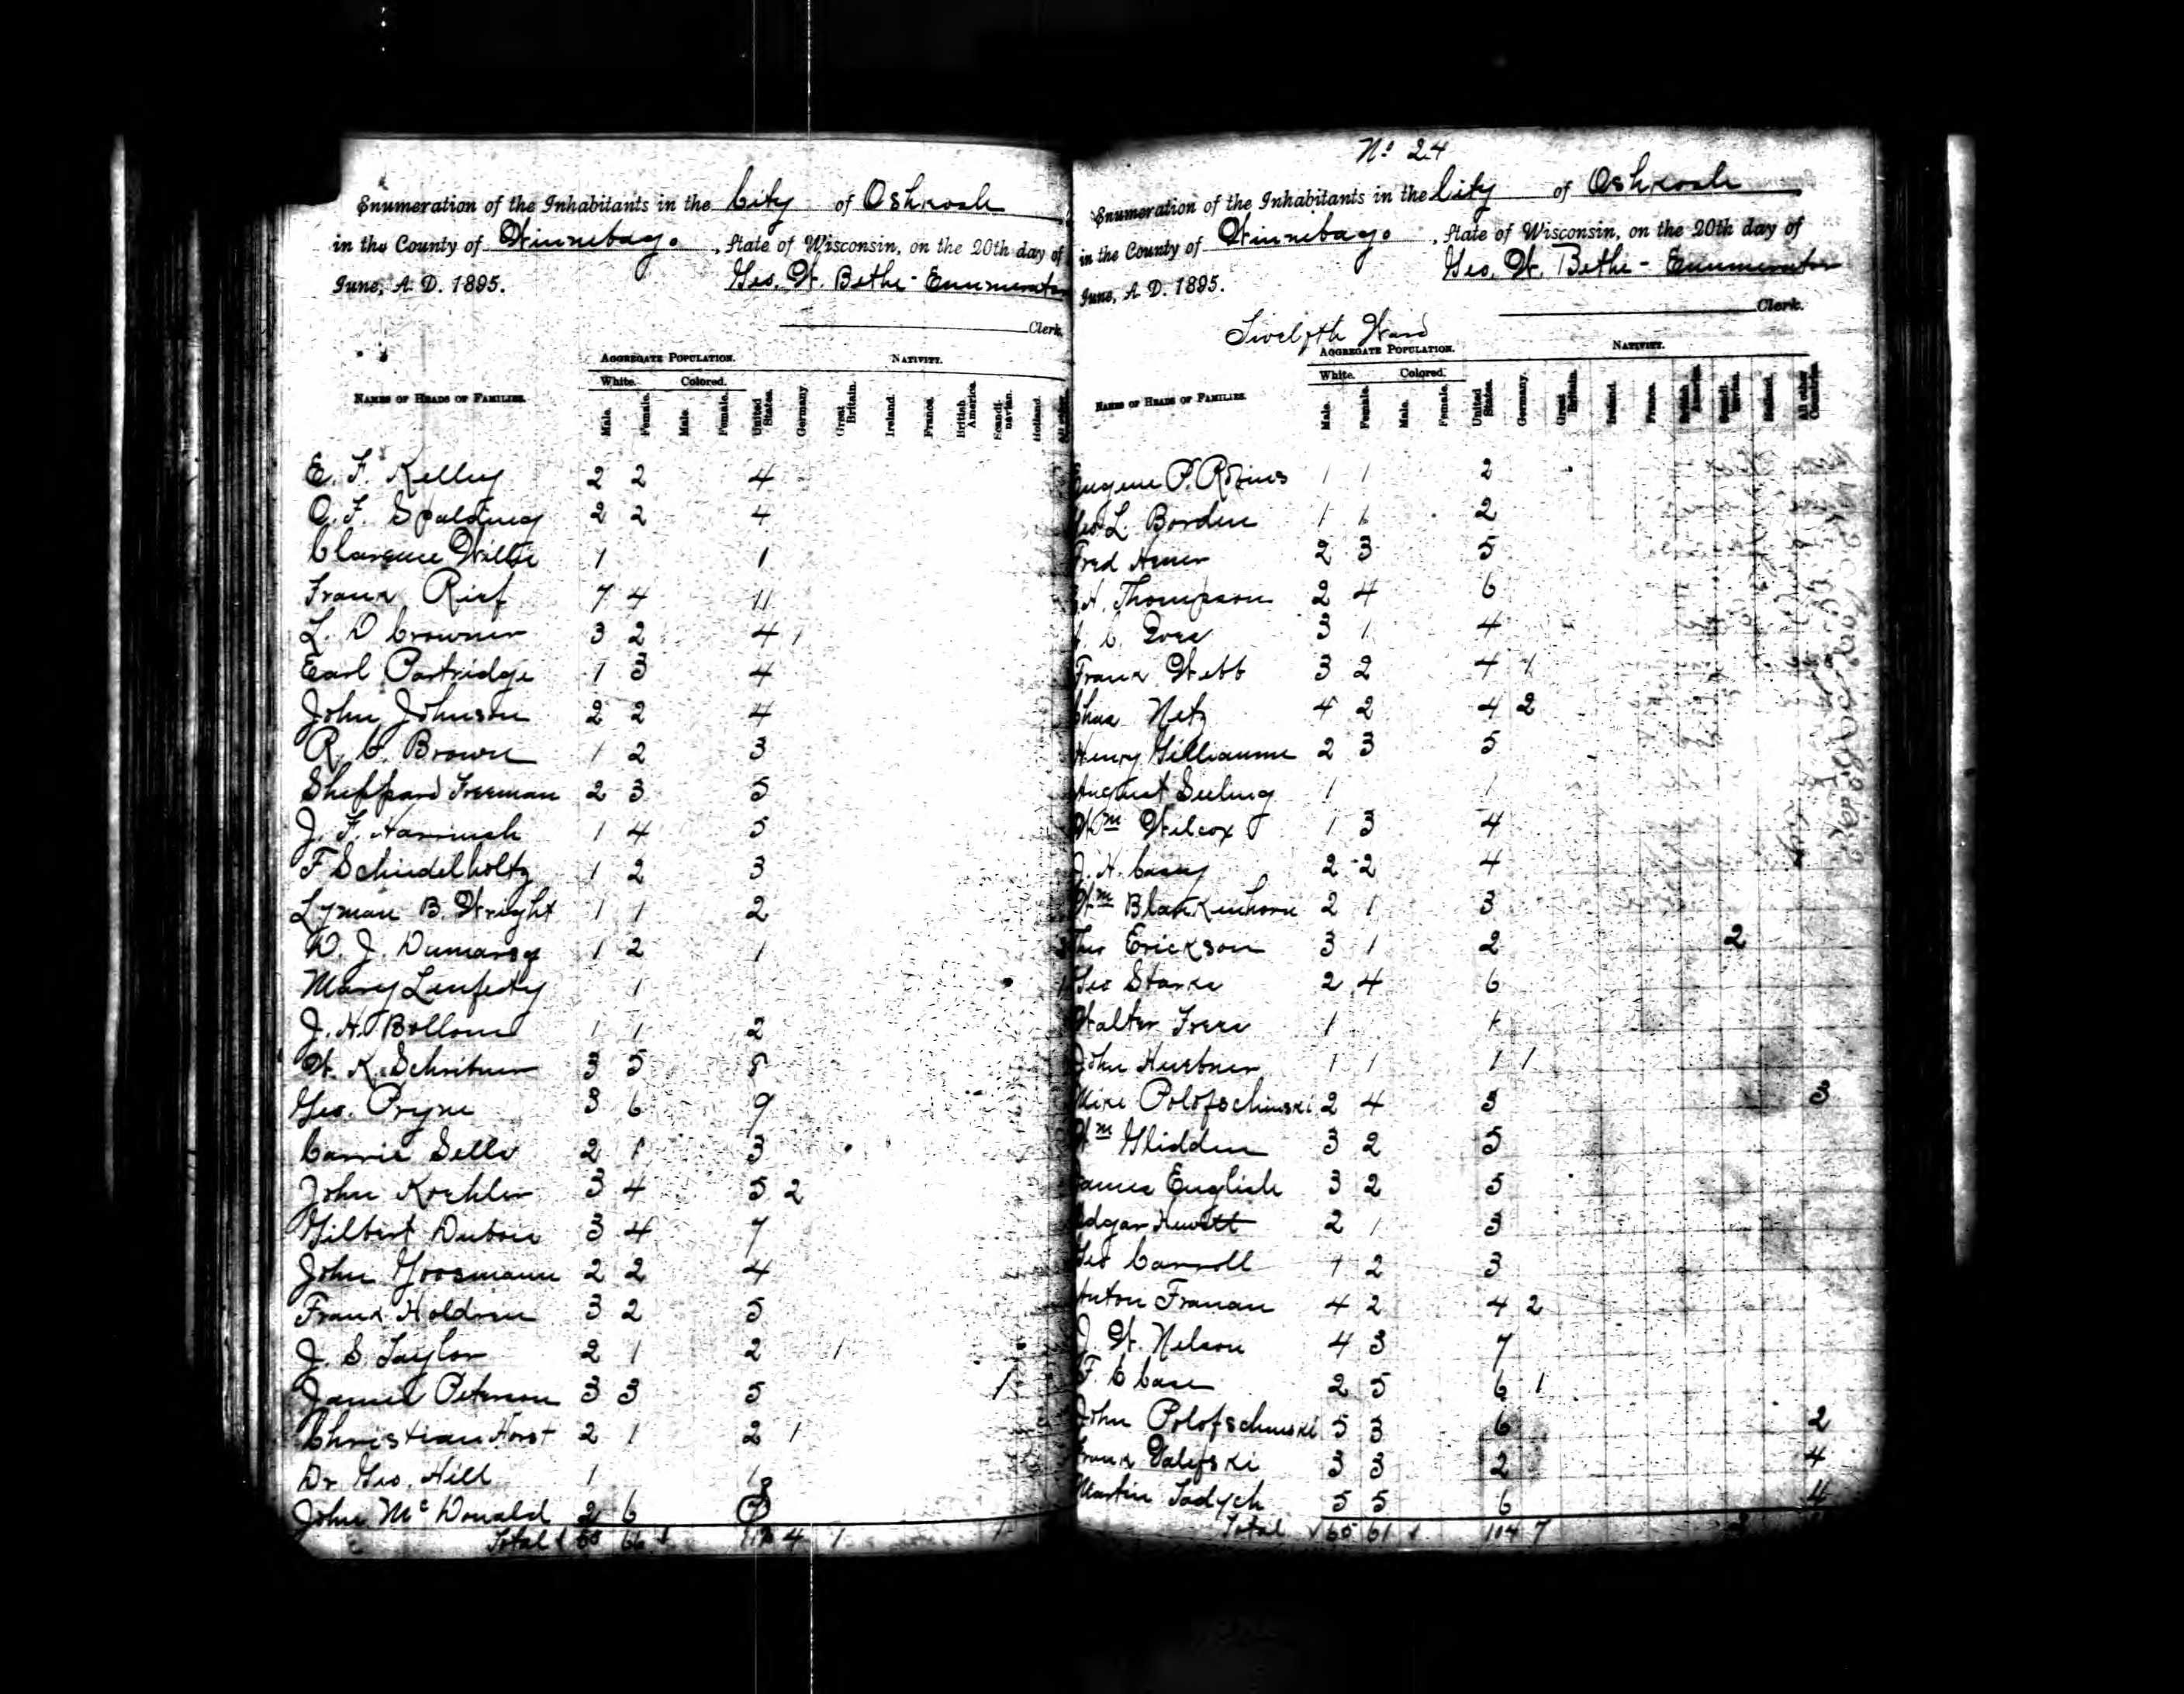 Enumeration of the Inhabitants in the City of Oshkosh
in the County of Winnebago, State of Wisconsin, on the 20th day of
June, A. D. 1895. Geo. W. Bethe - Enumerator
Clerk.
AGGREGATE POPULATION. NATIVITY.
White. Colored.
NAMES OF HEADS OF FAMILIES. Male. Female. Male. Female. United States. Germany Great Britain. Ireland. France. British America. Scandinavian. Holland.
E. F. Kelley 2 2 4
O. F. Spalding 2 2 4
Clarence Willie 1 1
Frank Rief 7 4 11
L. D Crowner 3 2 4 1
Earl Partridge 1 3 4
John Johnson 2 2 4
R. C. Brown 1 2 3
Sheppard Freeman 2 3 5
J. F. 1 4 5
F Schiedelholtz 1 2 3
Lyman B. Wright 1 1 2
D. J. 1 2 1
Mary 1
J. H. 1 1 2
W. K. Schribner 3 5 8
Geo. Pryne 3 6 9
Carrie Sells 2 1 3
John Koehler 3 4 5 2
Gilbert Dubois 3 4 7
John Goosmann 2 2 4
Frank Holdren 3 2 5
J. S. Taylor 2 1 2 1
James Peterson 3 3 5 1
Christian Horst 2 1 2 1
Dr Geo. Hill 1 1
John McDonald 2 6 8
Total 66 4 1 1
No 24
Enumeration of the Inhabitants in the City of Oshkosh
in the County of Winnebago, State of Wisconsin, on the 20th day of
June, A. D. 1895. Geo. W. Bethe - Enumerator
Clerk.
Twelfth Ward
AGGREGATE POPULATION. NATIVITY.
White. Colored.
NAMES OF HEADS OF FAMILIES. Male. Female. Male. Female. United States. Germany. Great Britain. Ireland. France. British America. Scandinavian. Holland. All other Countries.
Eugene P. 1 1 2
Geo L. Borden 1 1 2
Fred 2 3 5
H. Thompson 2 4 6
C. 3 1 4
Frank Webb 3 2 4 1
Chas Netz 4 2 4 2
Henry Gilliaume 2 3 5
August Seeling 1 1
Wm Wilcox 1 3 4
J. H. Casey 2 2 4
Wm Blankenhorn 2 1 3
Theo Erickson 3 1 2 2
Geo Starke 2 4 6
Walter Frere 1 1
John Huebner 1 1 1 1
Mike Polofschinski 2 4 3 3
Wm Glidden 3 2 5
James English 3 2 5
Edgar Hewett 2 1 3
Geo Carroll 1 2 3
Anton 4 2 4 2
J. W. Nelson 4 3 7
F. E Case 2 5 6 1
John Polofschinski 5 3 6 2
Frank 3 3 2 4
Martin Tadych 5 5 6 4
Total 65 61 104 7 2